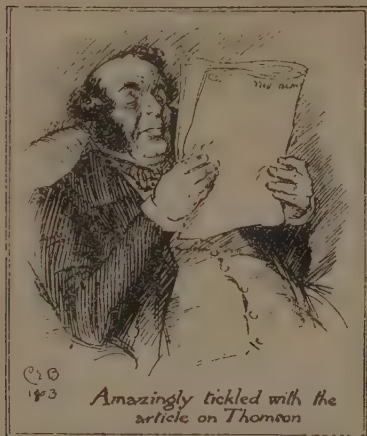 CEB
1903
Amazingly tickled with the
article on Thomson